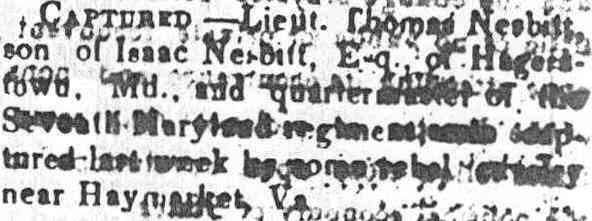 CAPTURED.—Lieut. Thomas Nesbitt,
son of Isaac Nesbitt, Esq., of Hagers-
town, Md., and quartermaster of the
Seventh Maryland regiment cap-
tured last week by some rebel cavalry
near Haymarket, Va.